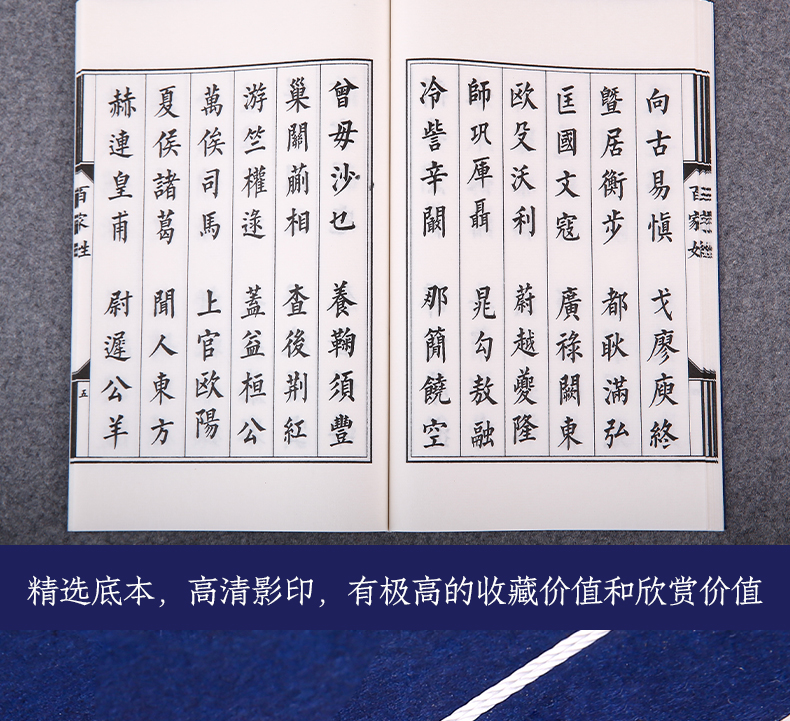 百家姓
向古易愼 戈廖庾終
暨居衡步 都耿滿弘
匡國文寇 廣祿闕東
歐殳沃利 蔚越夔隆
師巩厙聶 晁勾敖融
冷訾辛闞 那簡饒空
曾毋沙乜 養鞠須豐
巢關蒯相 查後荆紅
游竺權逯 蓋益桓公
萬俟司馬 上官歐陽
夏侯諸葛 聞人東方
赫連皇甫 尉遲公羊
百家姓 五
精选底本，高清影印，有极高的收藏价值和欣赏价值